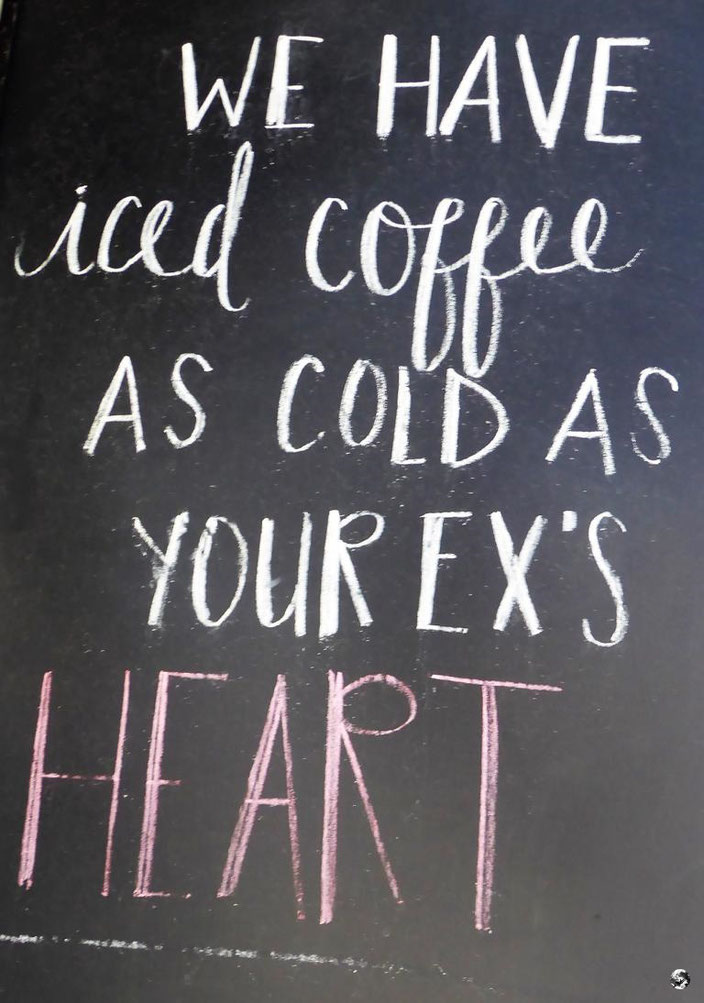 WE HAVE
iced coffee
AS COLD AS
YOUR EX'S
HEART